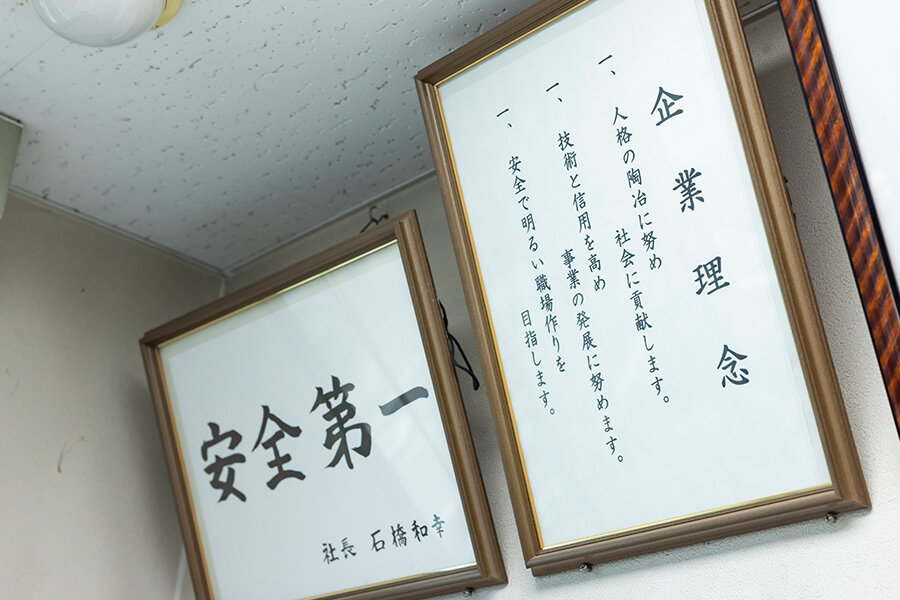 企業理念
一、人格の陶冶に努め
社会に貢献します。
一、技術と信用を高め
事業の発展に努めます。
一、安全で明るい職場作りを
目指します。
安全第一
社長 石橋和幸